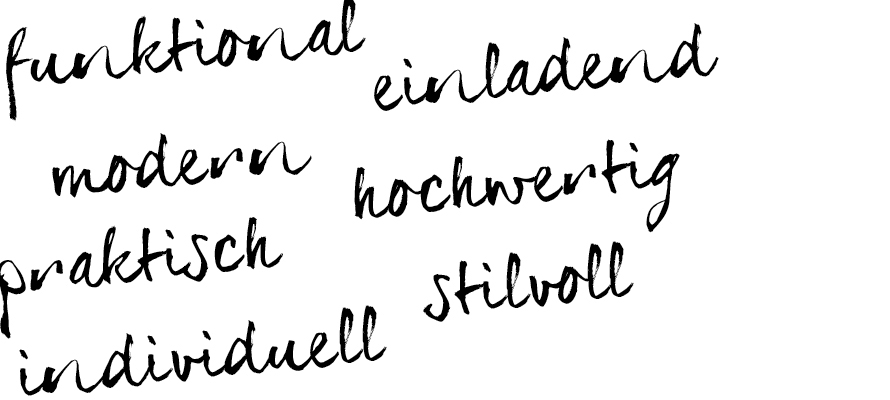 funktional
einladend
modern
hochwertig
praktisch
stilvoll
individuell